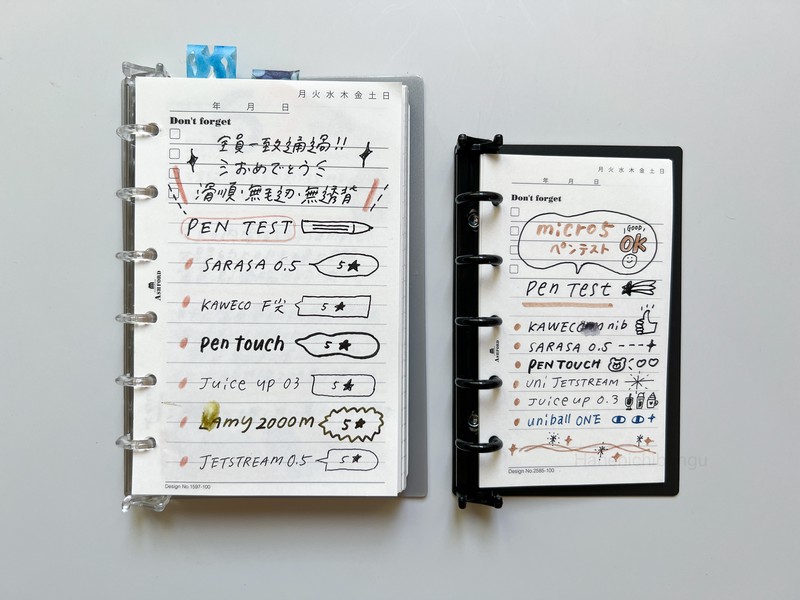 月 火 水 木 金 土 日
年 月 日
Don't forget
全員一致通過!!
おめでとう
滑順·無毛边·無透背
PEN TEST
SARASA 0.5 5★
KAWECO F尖 5★
Pen touch 5★
Juice up 03 5★
Lamy 2000M 5★
JETSTREAM 0.5 5★
ASHFORD
Design No.1597-100
月 火 水 木 金 土 日
年 月 日
Don't forget
micro5 GOOD
ペンテスト OK
Pen Test
KAWECO nib
SARASA 0.5
PEN TOUCH
uni JETSTREAM
Juice up 0.3
uniball ONE
Ashford
Design No.2585-100